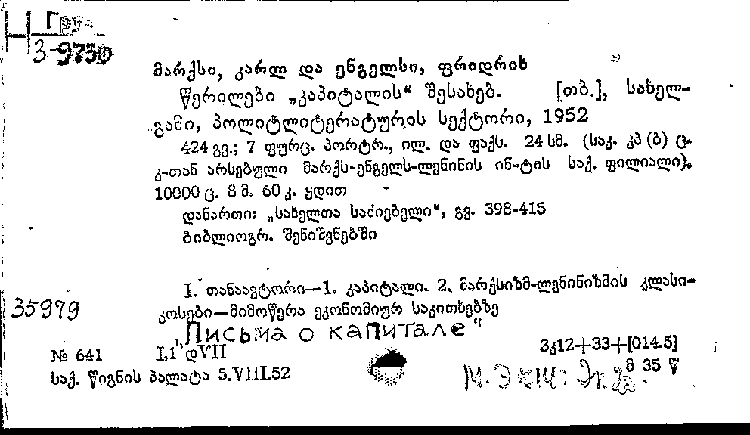 3-9730
მარქსი, კარლ და ენგელსი, ფრიდრიხ
წერილები „კაპიტალის“ შესახებ. [თბ.], სახელ-
გამი, პოლიტლიტერატურის სექტორი, 1952
424 გვ.; 7 ფურც. პორტრ., ილ. და ფაქს. 24 სმ. (საკ. კპ (ბ) ც.
კ-თან არსებული მარქს-ენგელს-ლენინის ინ-ტის საქ. ფილიალი).
10000 ც. 8 მ. 60 კ. ყდით
დანართი: „სახელთა საძიებელი“, გვ. 398-415
ბიბლიოგრ. შენიშვნებში
I. თანაავტორი—1. კაპიტალი. 2. მარქსიზმ-ლენინიზმის კლასი-
კოსები—მიმოწერა ეკონომიურ საკითხებზე
35979
„Письма о капитале“
№ 641 I.1 დVII 3კ12+33+[014.5]
საქ. წიგნის პალატა 5.VIII.52 მ 35 წ